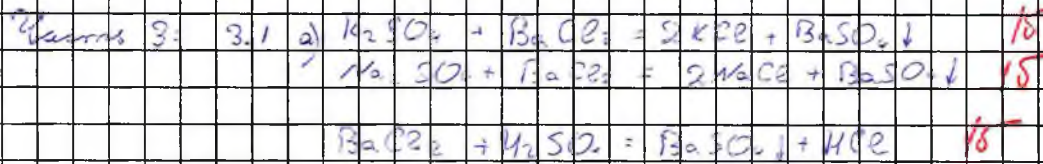 Часть 3: 3.1 а) K₂SO₄ + BaCl₂ = 2KCl + BaSO₄↓ 1б
Na₂SO₄ + BaCl₂ = 2NaCl + BaSO₄↓ 1б
BaCl₂ + H₂SO₄ = BaSO₄↓ + HCl 1б